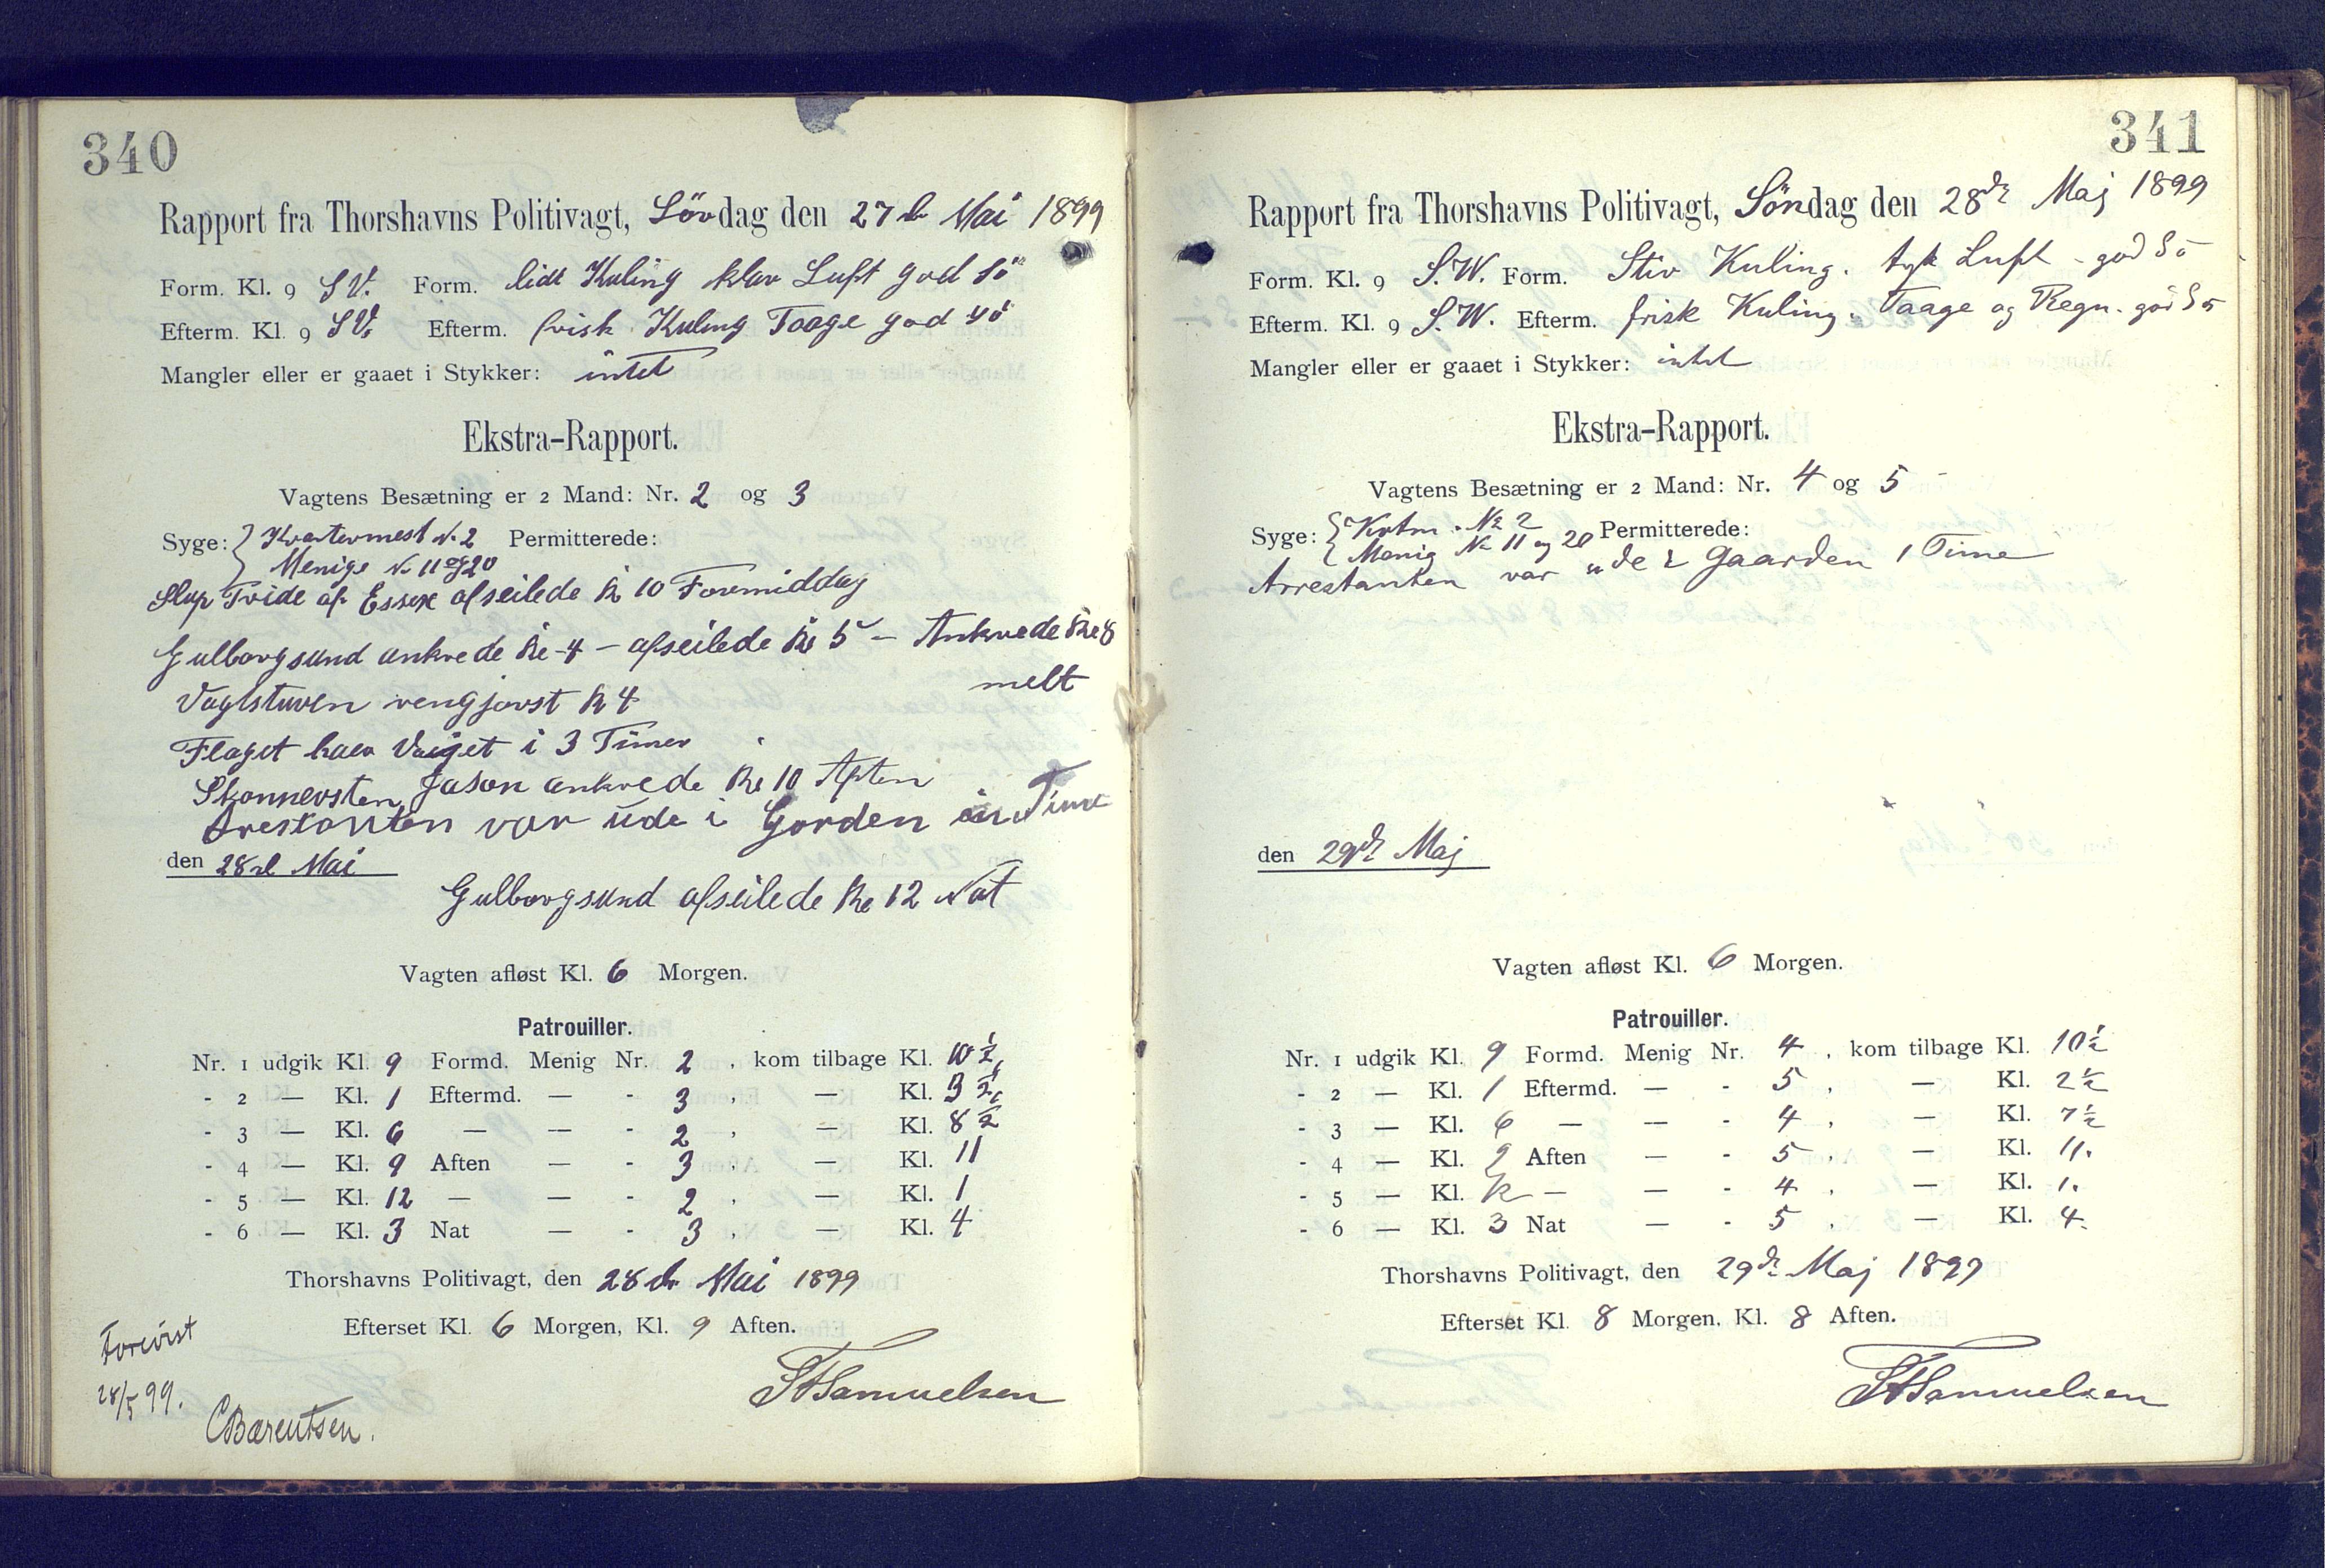 340
Rapport fra Thorshavns Politivagt, Lördag den 27d Mai 1899
Form. Kl. 9 S V. Form. lidt Kuling klar Luft god Sö
Efterm. Kl. 9 S V. Efterm. frisk Kuling Taage god Sö
Mangler eller er gaaet i Stykker: intet
Ekstra-Rapport.
Vagtens Besætning er 2 Mand: Nr. 2 og 3
Syge: { Kvartermest N. 2 Permitterede:
Menige N. 11 og 20
Slup Tvide af Essex afseilede Kl 10 Formiddag
Gulborgsund ankrede Kl 4 - afseilede Kl 5 - Ankrede Kl 8
melt
Vagtstuven rengjorst Kl 4
Flaget haer Vaiget i 3 Timer
Skonnersten Jason ankrede Kl 10 Aften
Arestanten var ude i Gorden en Time
den 28d Mai
Gulborgsund afseilede Kl 12 Nat
Vagten afløst Kl. 6 Morgen.
Patrouiller.
Nr. 1 udgik Kl. 9 Formd. Menig Nr. 2 , kom tilbage Kl. 10 1/2
- 2 — Kl. 1 Eftermd. — - 3 , — Kl. 3 1/2
- 3 — Kl. 6 — — - 2 , — Kl. 8 1/2
- 4 — Kl. 9 Aften — - 3 , — Kl. 11
- 5 — Kl. 12 — — - 2 , — Kl. 1
- 6 — Kl. 3 Nat — - 3 , — Kl. 4
Thorshavns Politivagt, den 28d Mai 1899
Efterset Kl. 6 Morgen, Kl. 9 Aften.
Forevist
28/5 99.
SASamuelsen
CBærentsen.
341
Rapport fra Thorshavns Politivagt, Söndag den 28d Maj 1899
Form. Kl. 9 S. W. Form. Stiv Kuling. tyk Luft - god Sö
Efterm. Kl. 9 S. W. Efterm. frisk Kuling. Taage og Regn. god Sö
Mangler eller er gaaet i Stykker: intet
Ekstra-Rapport.
Vagtens Besætning er 2 Mand: Nr. 4 og 5
Syge: { Kvtm. No 2 Permitterede:
Menig No 11 og 20
Arrestanten var ude i Gaarden 1 Time
den 29d Maj
Vagten afløst Kl. 6 Morgen.
Patrouiller.
Nr. 1 udgik Kl. 9 Formd. Menig Nr. 4 , kom tilbage Kl. 10 1/2
- 2 — Kl. 1 Eftermd. — - 5 , — Kl. 2 1/2
- 3 — Kl. 6 — — - 4 , — Kl. 7 1/2
- 4 — Kl. 9 Aften — - 5 , — Kl. 11.
- 5 — Kl. 12 — — - 4 , — Kl. 1.
- 6 — Kl. 3 Nat — - 5 , — Kl. 4.
Thorshavns Politivagt, den 29d Maj 1899
Efterset Kl. 8 Morgen, Kl. 8 Aften.
SASamuelsen